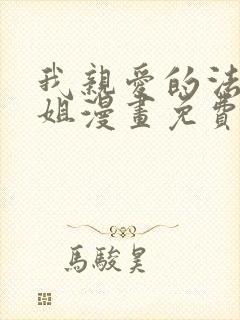 我親愛的法
姐漫畫免費
馬駿昊